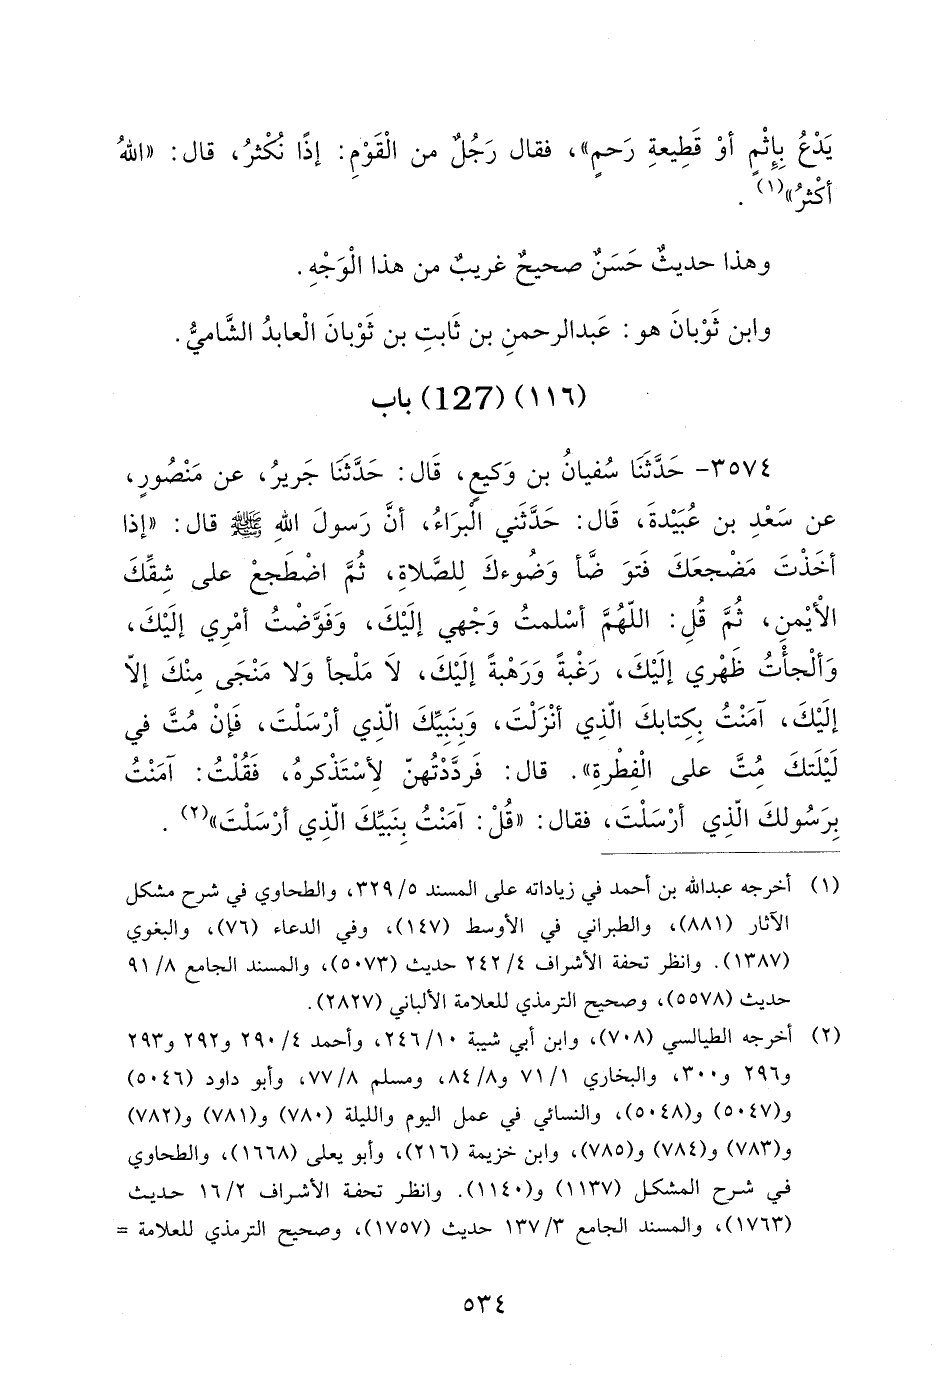 يَدْعُ بِإِثْمٍ أوْ قَطِيعةِ رَحمٍ»، فقال رَجُلٌ من الْقَوْمِ: إذًا نُكْثرُ، قال: «اللهُ
أكْثرُ»(١) .
وهذا حديثٌ حَسَنٌ صحيحٌ غريبٌ من هذا الْوَجْهِ.
وابن ثَوْبانَ هو: عَبدالرحمنِ بن ثَابتِ بن ثَوْبانَ الْعابدُ الشَّاميُّ.
(١١٦) (127) باب
٣٥٧٤- حَدَّثَنَا سُفيانُ بن وَكيعٍ، قَال: حَدَّثَنَا جَريرُ، عن مَنْصُورٍ،
عن سَعْدِ بن عُبَيْدةَ، قَالَ: حَدَّثَني الْبَراءُ، أنَّ رَسولَ اللهِ ﷺ قال: «إذا
أخَذْتَ مَضْجعَكَ فَتوَ ضَّأ وَضُوءكَ لِلصَّلاةِ، ثُمَّ اضْطَجعْ على شِقِّكَ
الْأيْمنِ، ثُمَّ قُلِ: اللّهُمَّ أسْلمتُ وَجْهي إلَيْكَ، وَفَوَّضْتُ أمْرِي إلَيْكَ،
وَألْجأْتُ ظَهْري إلَيْكَ، رَغْبةً وَرَهْبةً إلَيْكَ، لاَ مَلْجأ وَلا مَنْجَى مِنْكَ إلاّ
إلَيْكَ، آمَنْتُ بِكِتابكَ الّذِي أنْزَلْتَ، وَبِنَبيِّكَ الّذِي أرْسَلْتَ، فَإنْ مُتَّ في
لَيْلَتكَ مُتَّ على الْفِطْرةِ». قال: فَردَّدْتُهنّ لِأسْتَذْكرهُ، فَقُلْتُ: آمَنْتُ
بِرَسُولكَ الّذِي أرْسَلْتَ، فقال: «قُلْ: آمَنْتُ بِنَبيِّكَ الّذِي أرْسَلْتَ»(٢) .
(١) أخرجه عبدالله بن أحمد في زياداته على المسند ٥/ ٣٢٩، والطحاوي في شرح مشكل
الآثار (٨٨١)، والطبراني في الأوسط (١٤٧)، وفي الدعاء (٧٦)، والبغوي
(١٣٨٧). وانظر تحفة الأشراف ٤/ ٢٤٢ حديث (٥٠٧٣)، والمسند الجامع ٨/ ٩١
حديث (٥٥٧٨)، وصحيح الترمذي للعلامة الألباني (٢٨٢٧).
(٢) أخرجه الطيالسي (٧٠٨)، وابن أبي شيبة ١٠/ ٢٤٦، وأحمد ٤/ ٢٩٠ و٢٩٢ و٢٩٣
و٢٩٦ و٣٠٠، والبخاري ١/ ٧١ و٨/ ٨٤، ومسلم ٨/ ٧٧، وأبو داود (٥٠٤٦)
و(٥٠٤٧) و(٥٠٤٨)، والنسائي في عمل اليوم والليلة (٧٨٠) و(٧٨١) و(٧٨٢)
و(٧٨٣) و(٧٨٤) و(٧٨٥)، وابن خزيمة (٢١٦)، وأبو يعلى (١٦٦٨)، والطحاوي
في شرح المشكل (١١٣٧) و(١١٤٠). وانظر تحفة الأشراف ٢/ ١٦ حديث
(١٧٦٣)، والمسند الجامع ٣/ ١٣٧ حديث (١٧٥٧)، وصحيح الترمذي للعلامة =
٥٣٤